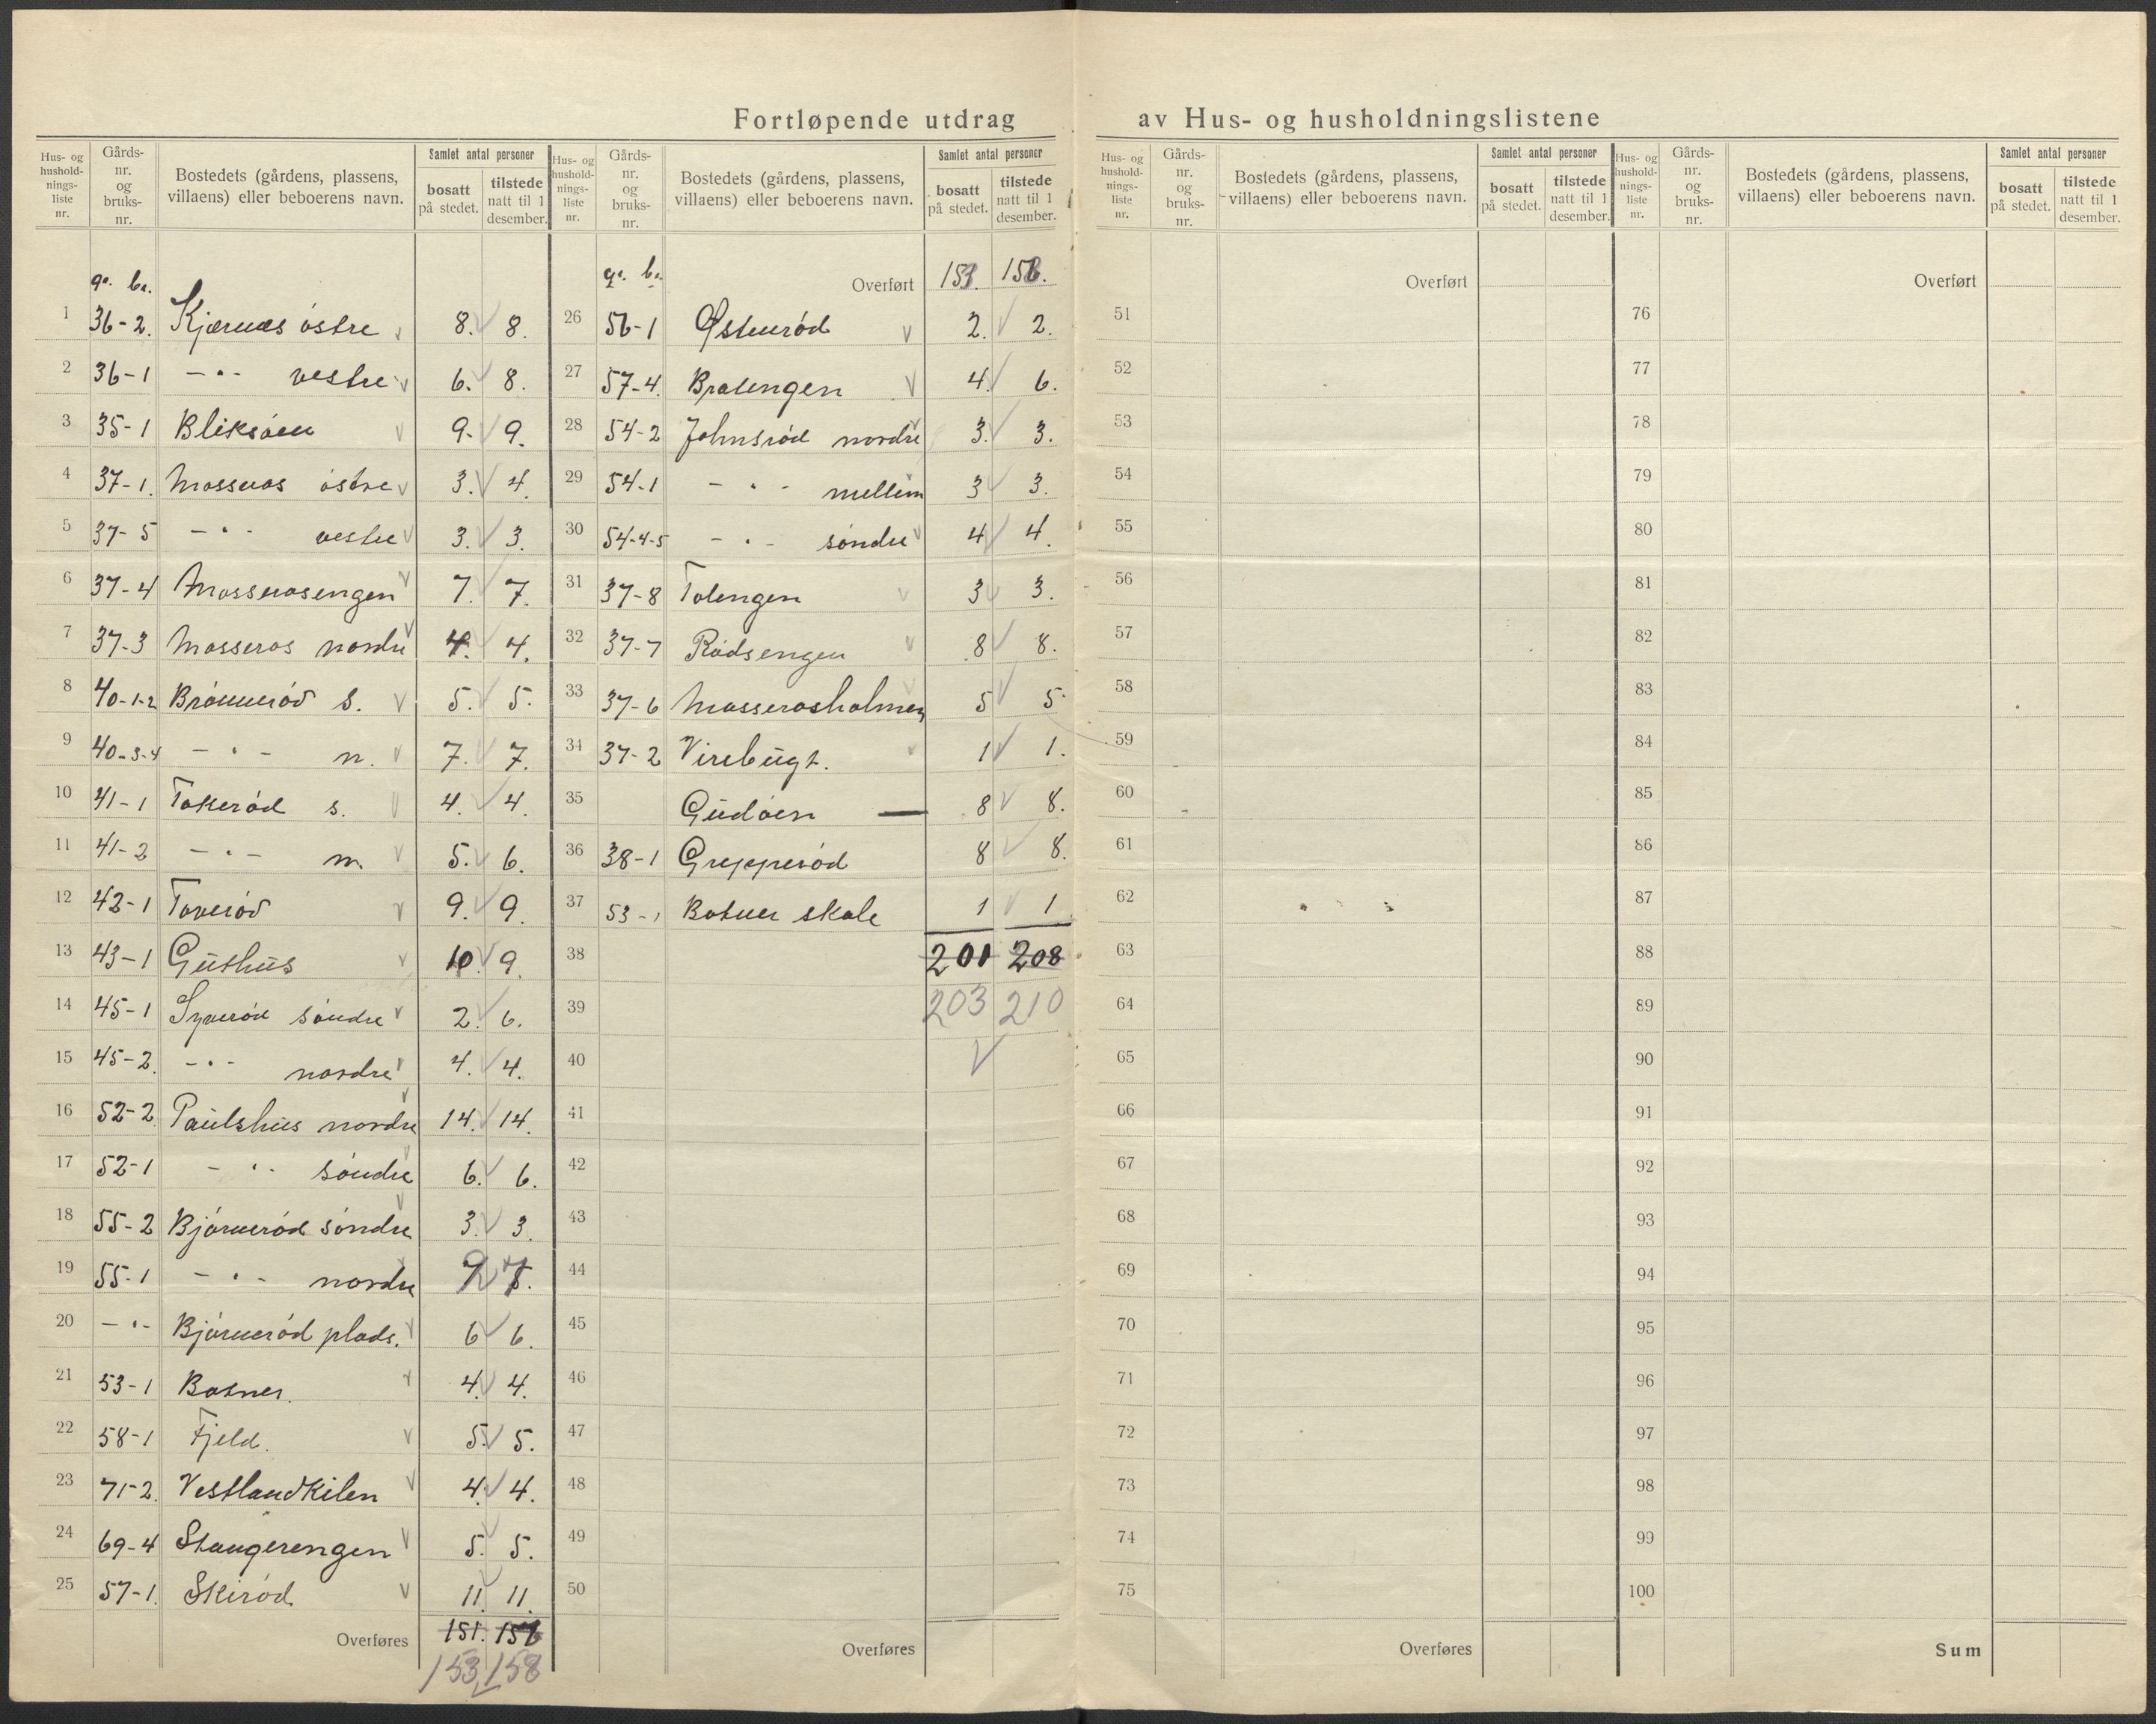 Fortløpende utdrag av Hus- og husholdningslistene
Hus- og husholdnings- liste nr. Gårds- nr. og bruks- nr. Bostedets (gårdens, plassens, villaens) eller beboerens navn. Samlet antal personer bosatt på stedet. tilstede natt til 1 desember.
Hus- og husholdnings- liste nr. Gårds- nr. og bruks- nr. Bostedets (gårdens, plassens, villaens) eller beboerens navn. Samlet antal personer bosatt på stedet. tilstede natt til 1 desember.
Hus- og husholdnings- liste nr. Gårds- nr. og bruks- nr. Bostedets (gårdens, plassens, villaens) eller beboerens navn. Samlet antal personer bosatt på stedet. tilstede natt til 1 desember.
Hus- og husholdnings- liste nr. Gårds- nr. og bruks- nr. Bostedets (gårdens, plassens, villaens) eller beboerens navn. Samlet antal personer bosatt på stedet. tilstede natt til 1 desember.
g. b.
1 36-2. Kjærnæs östre v 8. v 8.
2 36-1 -"- vestre v 6. v 8.
3 35-1 Bliksöen v 9. v 9.
4 37-1. Masseros östre v 3. v 4.
5 37-5 -"- vestre v 3. v 3.
6 37-4 Masserosengen v 7. v 7.
7 37-3 Masseros nordre v 4. v 4.
8 40-1-2 Brönnerød S. v 5. v 5.
9 40-3-4 -"- n. v 7. v 7.
10 41-1 Takeröd s. v 4. v 4.
11 41-2 -"- n. v 5. v 6.
12 42-1 Taveröd v 9. v 9.
13 43-1 Guthus v 10. v 9.
14 45-1 Syveröd söndre v 2. v 6.
15 45-2. -"- nordre v 4. v 4.
16 52-2. Paulshus nordre v 14. v 14.
17 52-1 -"- söndre v 6. v 6.
18 55-2 Björneröd söndre v 3. v 3.
19 55-1 -"- nordre v
20 -"- Björneröd plads. v 6 v 6.
21 53-1 Botner. v 4. v 4.
22 58-1 Fjeld. v 5. v 5.
23 71-2. Vestlandkilen v 4. v 4.
24 69-4 Stangerengen v 5. v 5.
25 57-1. Skiröd v 11. v 11.
Overføres 151.
153 v 158
g. b. Overført
26 56-1 Østenröd v 2. v 2.
27 57-4. Bratengen v 4. v 6.
28 54-2 Johnsröd nordre v 3. v 3.
29 54-1 -"- mellem 3 v 3.
30 54-4-5 -"- söndre v 4 v 4.
31 37-8 Tolengen v 3 v 3.
32 37-7 Rödsengen v 8 v 8.
33 37-6 Masserosholmen v 5 v 5.
34 37-2 Virebugt. v 1 v 1.
35 Gudöen — 8 v 8.
36 38-1 Grepperöd 8 v 8.
37 53-1 Botner skole 1 v 1
38 201 208
39 203 210
40 v
41
42
43
44
45
46
47
48
49
50
Overføres
Overført
51
52
53
54
55
56
57
58
59
60
61
62
63
64
65
66
67
68
69
70
71
72
73
74
75
Overføres
Overført
76
77
78
79
80
81
82
83
84
85
86
87
88
89
90
91
92
93
94
95
96
97
98
99
100
Sum